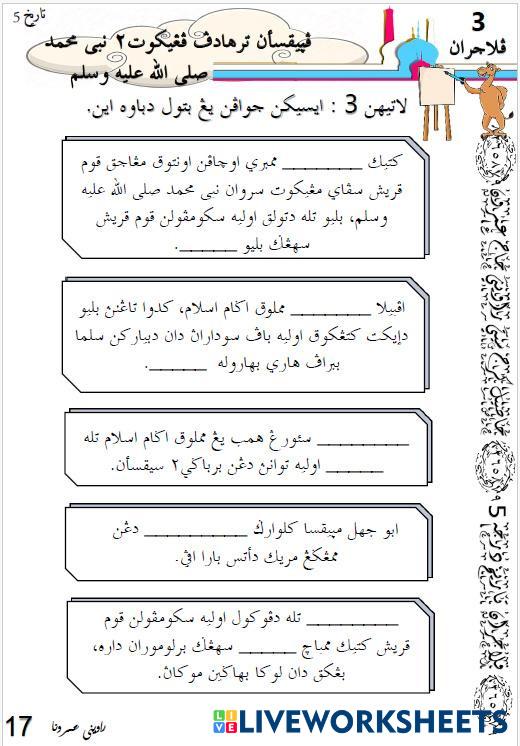 تاريخ 5
3
ڤلاجرن
ڤڽيقسأن ترهادڤ ڤڠيكوت٢ نبي محمد
صلى الله عليه وسلم
لاتيهن 3 : ايسيكن جواڤن يڠ بتول دباوه اين.
كتيك ________ ممبري اوچاڤن اونتوق مڠاجق قوم
قريش سڤاي مڠيكوت سروان نبي محمد صلى الله عليه
وسلم، بليو تله دتولق اوليه سكومڤولن قوم قريش
سهيڠݢ بليو ______.
اڤبيلا ________ مملوق اݢام اسلام، كدوا تاڠنڽ بليو
دأيكت كتڠكوق اوليه باڤ سوداراڽ دان دبياركن سلما
ببراڤ هاري بهاروله ______.
_________ سئورڠ همب يڠ مملوق اݢام اسلام تله
______ اوليه توانڽ دڠن برباݢي٢ سيقسأن.
ابو جهل مڽيقسا كلوارݢ __________ دڠن
ممڠݢڠ مريك دأتس بارا اڤي.
_________ تله دڤوكول اوليه سكومڤولن قوم
قريش كتيك ممباچ ______ سهيڠݢ برلوموران داره،
بڠكق دان لوكا بهاݢين موكاڽ.
5
17
LIVEWORKSHEETS